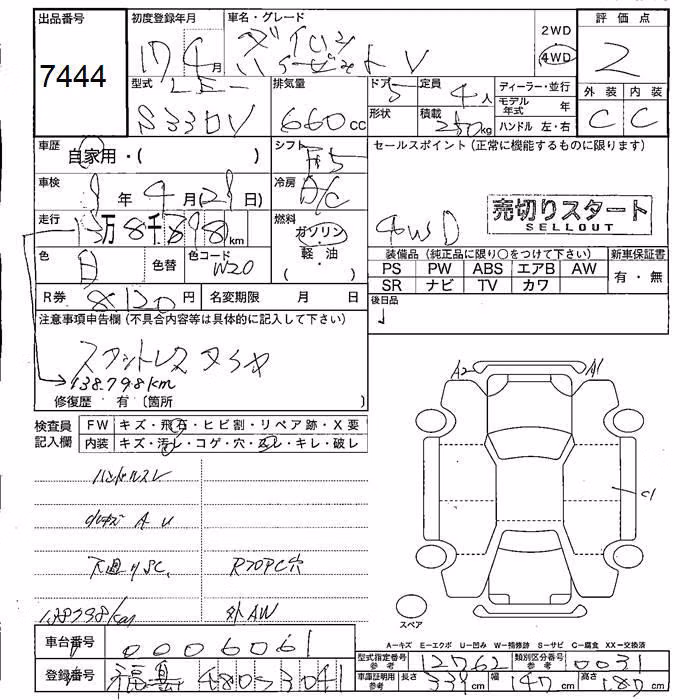 出品番号
7444
初度登録年月
17 4月
車名・グレード
ダイハツ
ハイゼット V
2WD
4WD
評価点
2
型式
S330V
排気量
660cc
ドア
5
形状
定員
4人
積載
250kg
ディーラー・並行
モデル年式 年
ハンドル 左・右
外装 内装
C C
車歴
自家用・( )
シフト
F5
車検
年 4月(2 日)
冷房
A/C
走行
13万8千798km
燃料
ガソリン
・
軽・油
( )
色
白
色替
色コード
W20
R券
8120円
名変期限 月 日
セールスポイント(正常に機能するものに限ります)
4WD
売切りスタート
SELLOUT
装備品(純正品に限り○をつけて下さい)
新車保証書
PS PW ABS エアB AW
SR ナビ TV カワ
有・無
後日品
注意事項申告欄(不具合内容等は具体的に記入して下さい)
138.798km
修復歴 有〔箇所
検査員
記入欄
FW キズ・飛石・ヒビ割・リペア跡・X要
内装 キズ・汚レ・コゲ・穴・スレ・キレ・破レ
ハンドルスレ
小キズ A U
下廻りSC.
R70PC穴
138798km
外AW
A2
A1
C1
スペア
A=キズ E=エクボ U=凹み W=補修跡 S=サビ C=腐食 XX=交換済
車台番号
0006061
登録番号
福島 480 3041
型式指定番号
参考
12762
類別区分番号
参考
0031
車庫証明用
参考
長さ 339cm
幅 147cm
高さ 187cm